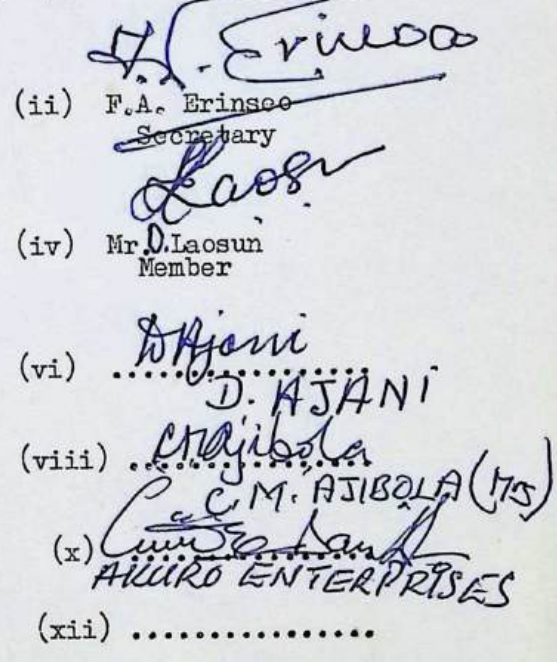 Erinsoo
(ii) F.A. Erinsoo
Secretary
Laosun
(iv) Mr.D.Laosun
Member
DAjani
(vi) ..................
D. AJANI
CMAjibola
(viii) ..................
C.M. AJIBOLA (Mrs)
(x) ..................
AKURO ENTERPRISES
(xii) ..................